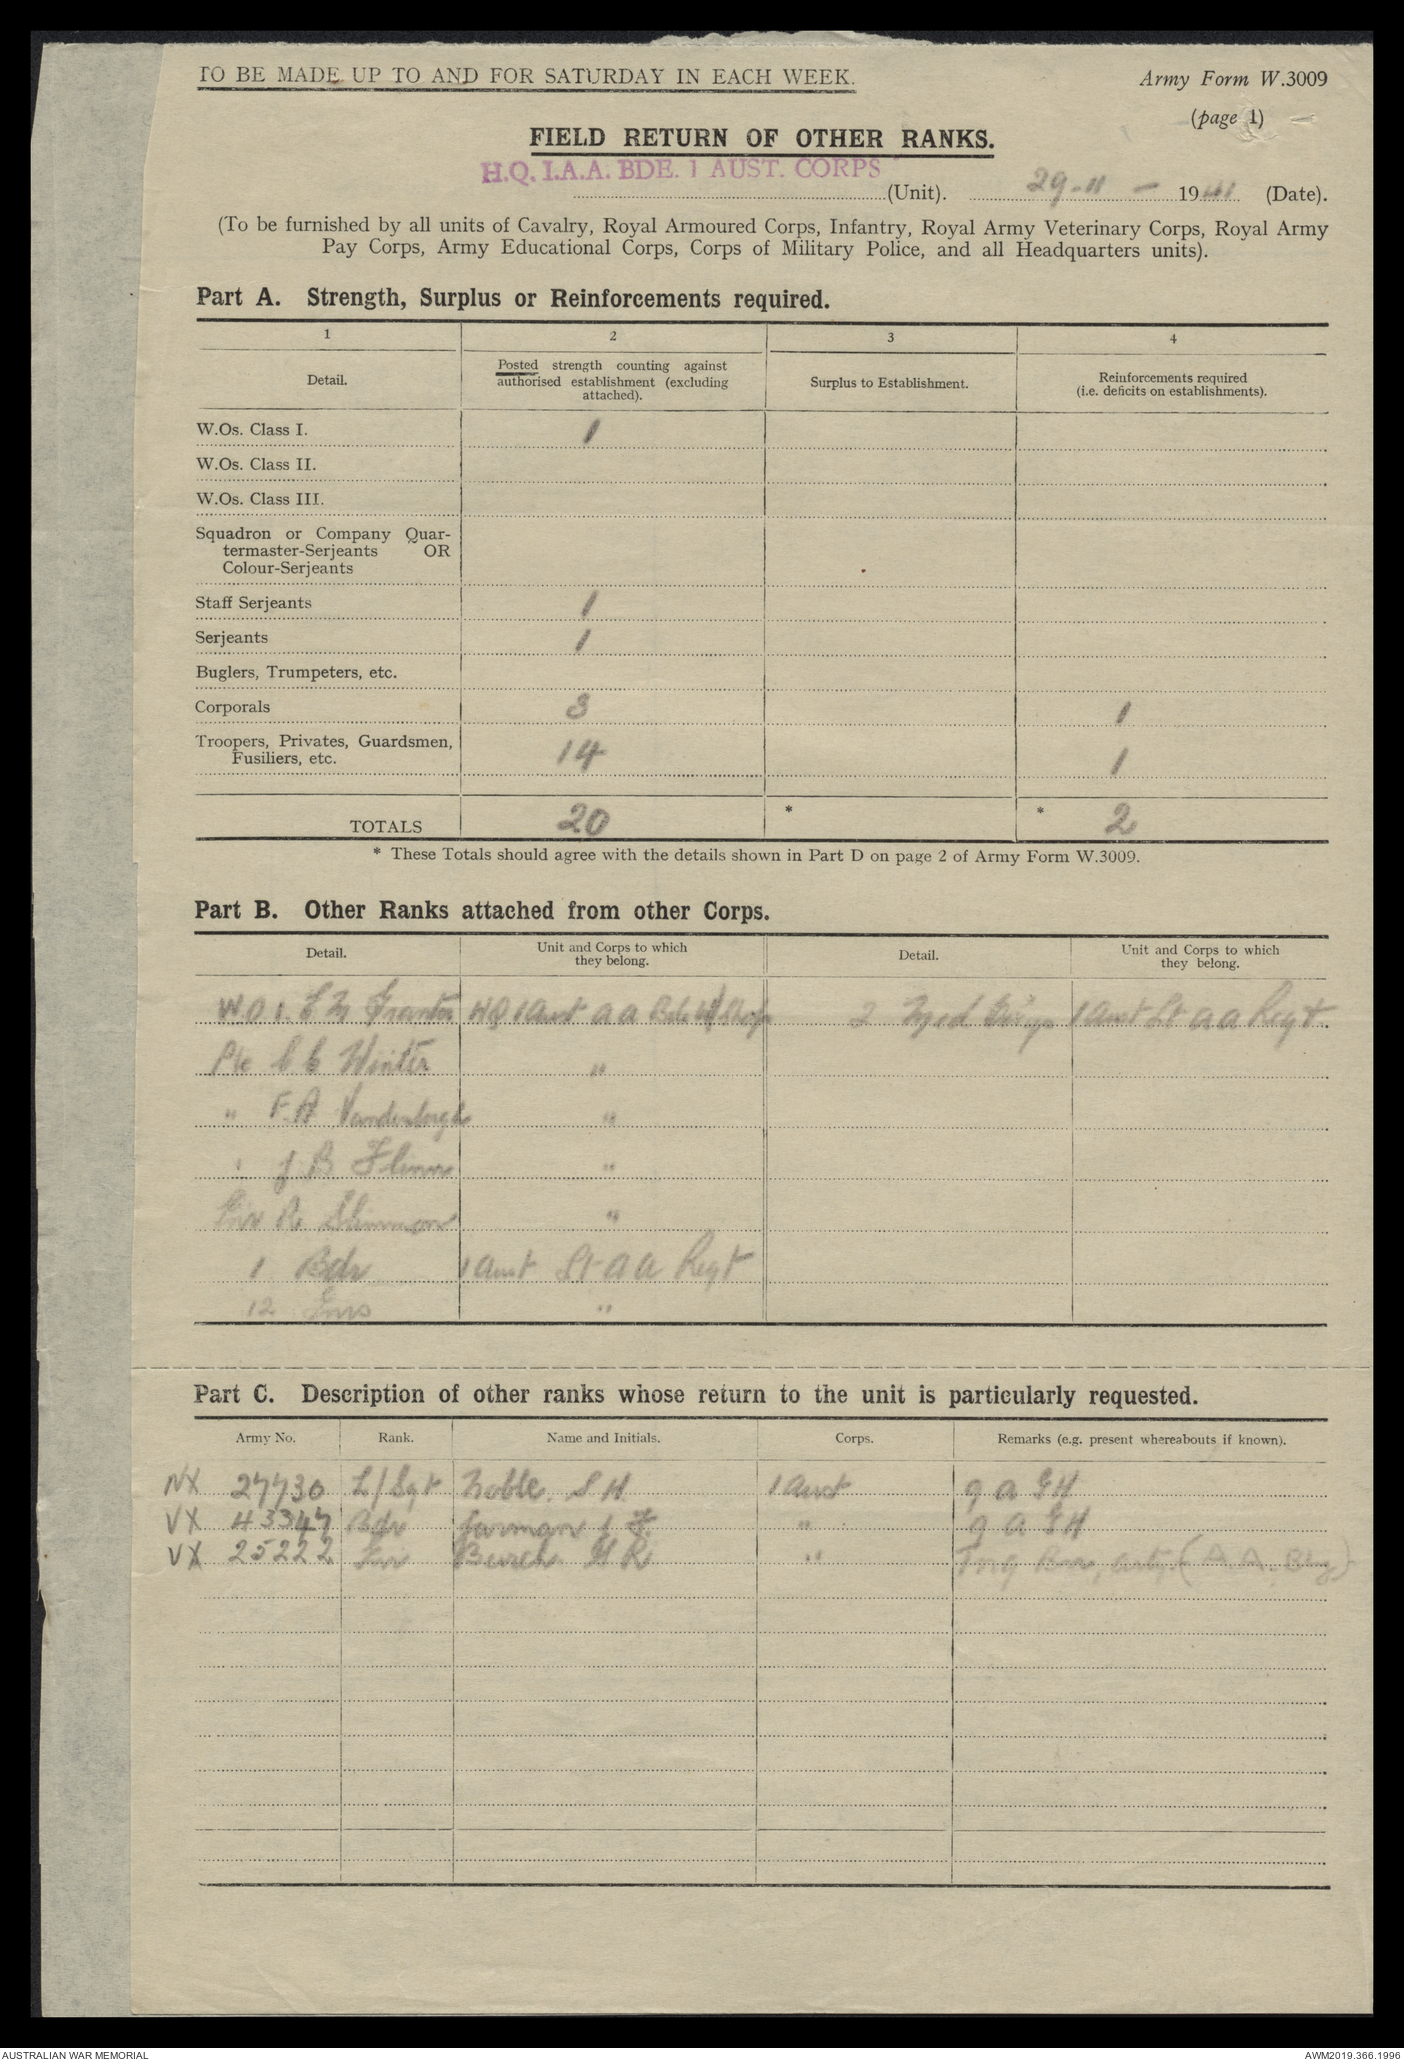 TO BE MADE UP TO AND FOR SATURDAY IN EACH WEEK.
Army Form W.3009
(page 1)
FIELD RETURN OF OTHER RANKS.
H.Q. 1.A.A. BDE. 1 AUST. CORPS
(Unit). 29-11- 1941 (Date).
(To be furnished by all units of Cavalry, Royal Armoured Corps, Infantry, Royal Army Veterinary Corps, Royal Army
Pay Corps, Army Educational Corps, Corps of Military Police, and all Headquarters units).
Part A. Strength, Surplus or Reinforcements required.
1 2 3 4
Detail.
Posted strength counting against
authorised establishment (excluding
attached).
Surplus to Establishment.
Reinforcements required
(i.e. deficits on establishments).
W.Os. Class I. 1
W.Os. Class II.
W.Os. Class III.
Squadron or Company Quar-
termaster-Serjeants OR
Colour-Serjeants
Staff Serjeants 1
Serjeants 1
Buglers, Trumpeters, etc.
Corporals 3 1
Troopers, Privates, Guardsmen,
Fusiliers, etc. 14 1
TOTALS 20 * * 2
* These Totals should agree with the details shown in Part D on page 2 of Army Form W.3009.
Part B. Other Ranks attached from other Corps.
Detail.
Unit and Corps to which
they belong.
Detail.
Unit and Corps to which
they belong.
W.O.1. HQ 1 Aust A A Bde 2 1 Aust Lt A A Regt
Pte Winter "
" F.A Vandenbergh "
" J B "
R "
1 Bdr 1 Aust Lt A A Regt
12 Gnrs "
Part C. Description of other ranks whose return to the unit is particularly requested.
Army No. Rank. Name and Initials. Corps. Remarks (e.g. present whereabouts if known).
NX 27730 L/Sgt Noble. S H. 1 Aust 9 A G H
VX 43347 Bdr Jarman J " 9 A G H
VX 25222 Gnr H R " Tng (A A. )
AUSTRALIAN WAR MEMORIAL
AWM2019.366.1996